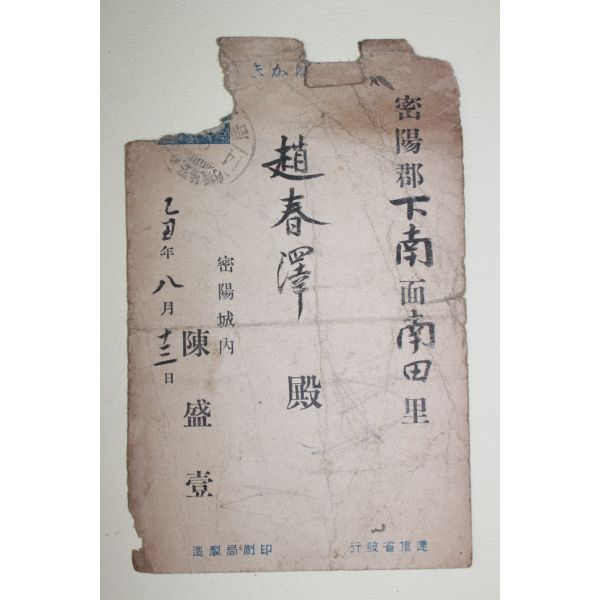 はがき
密陽郡下南面南田里
趙春澤 殿
密陽城內
陳盛壹
乙丑年八月十三日
遞信省發行
印刷局製造